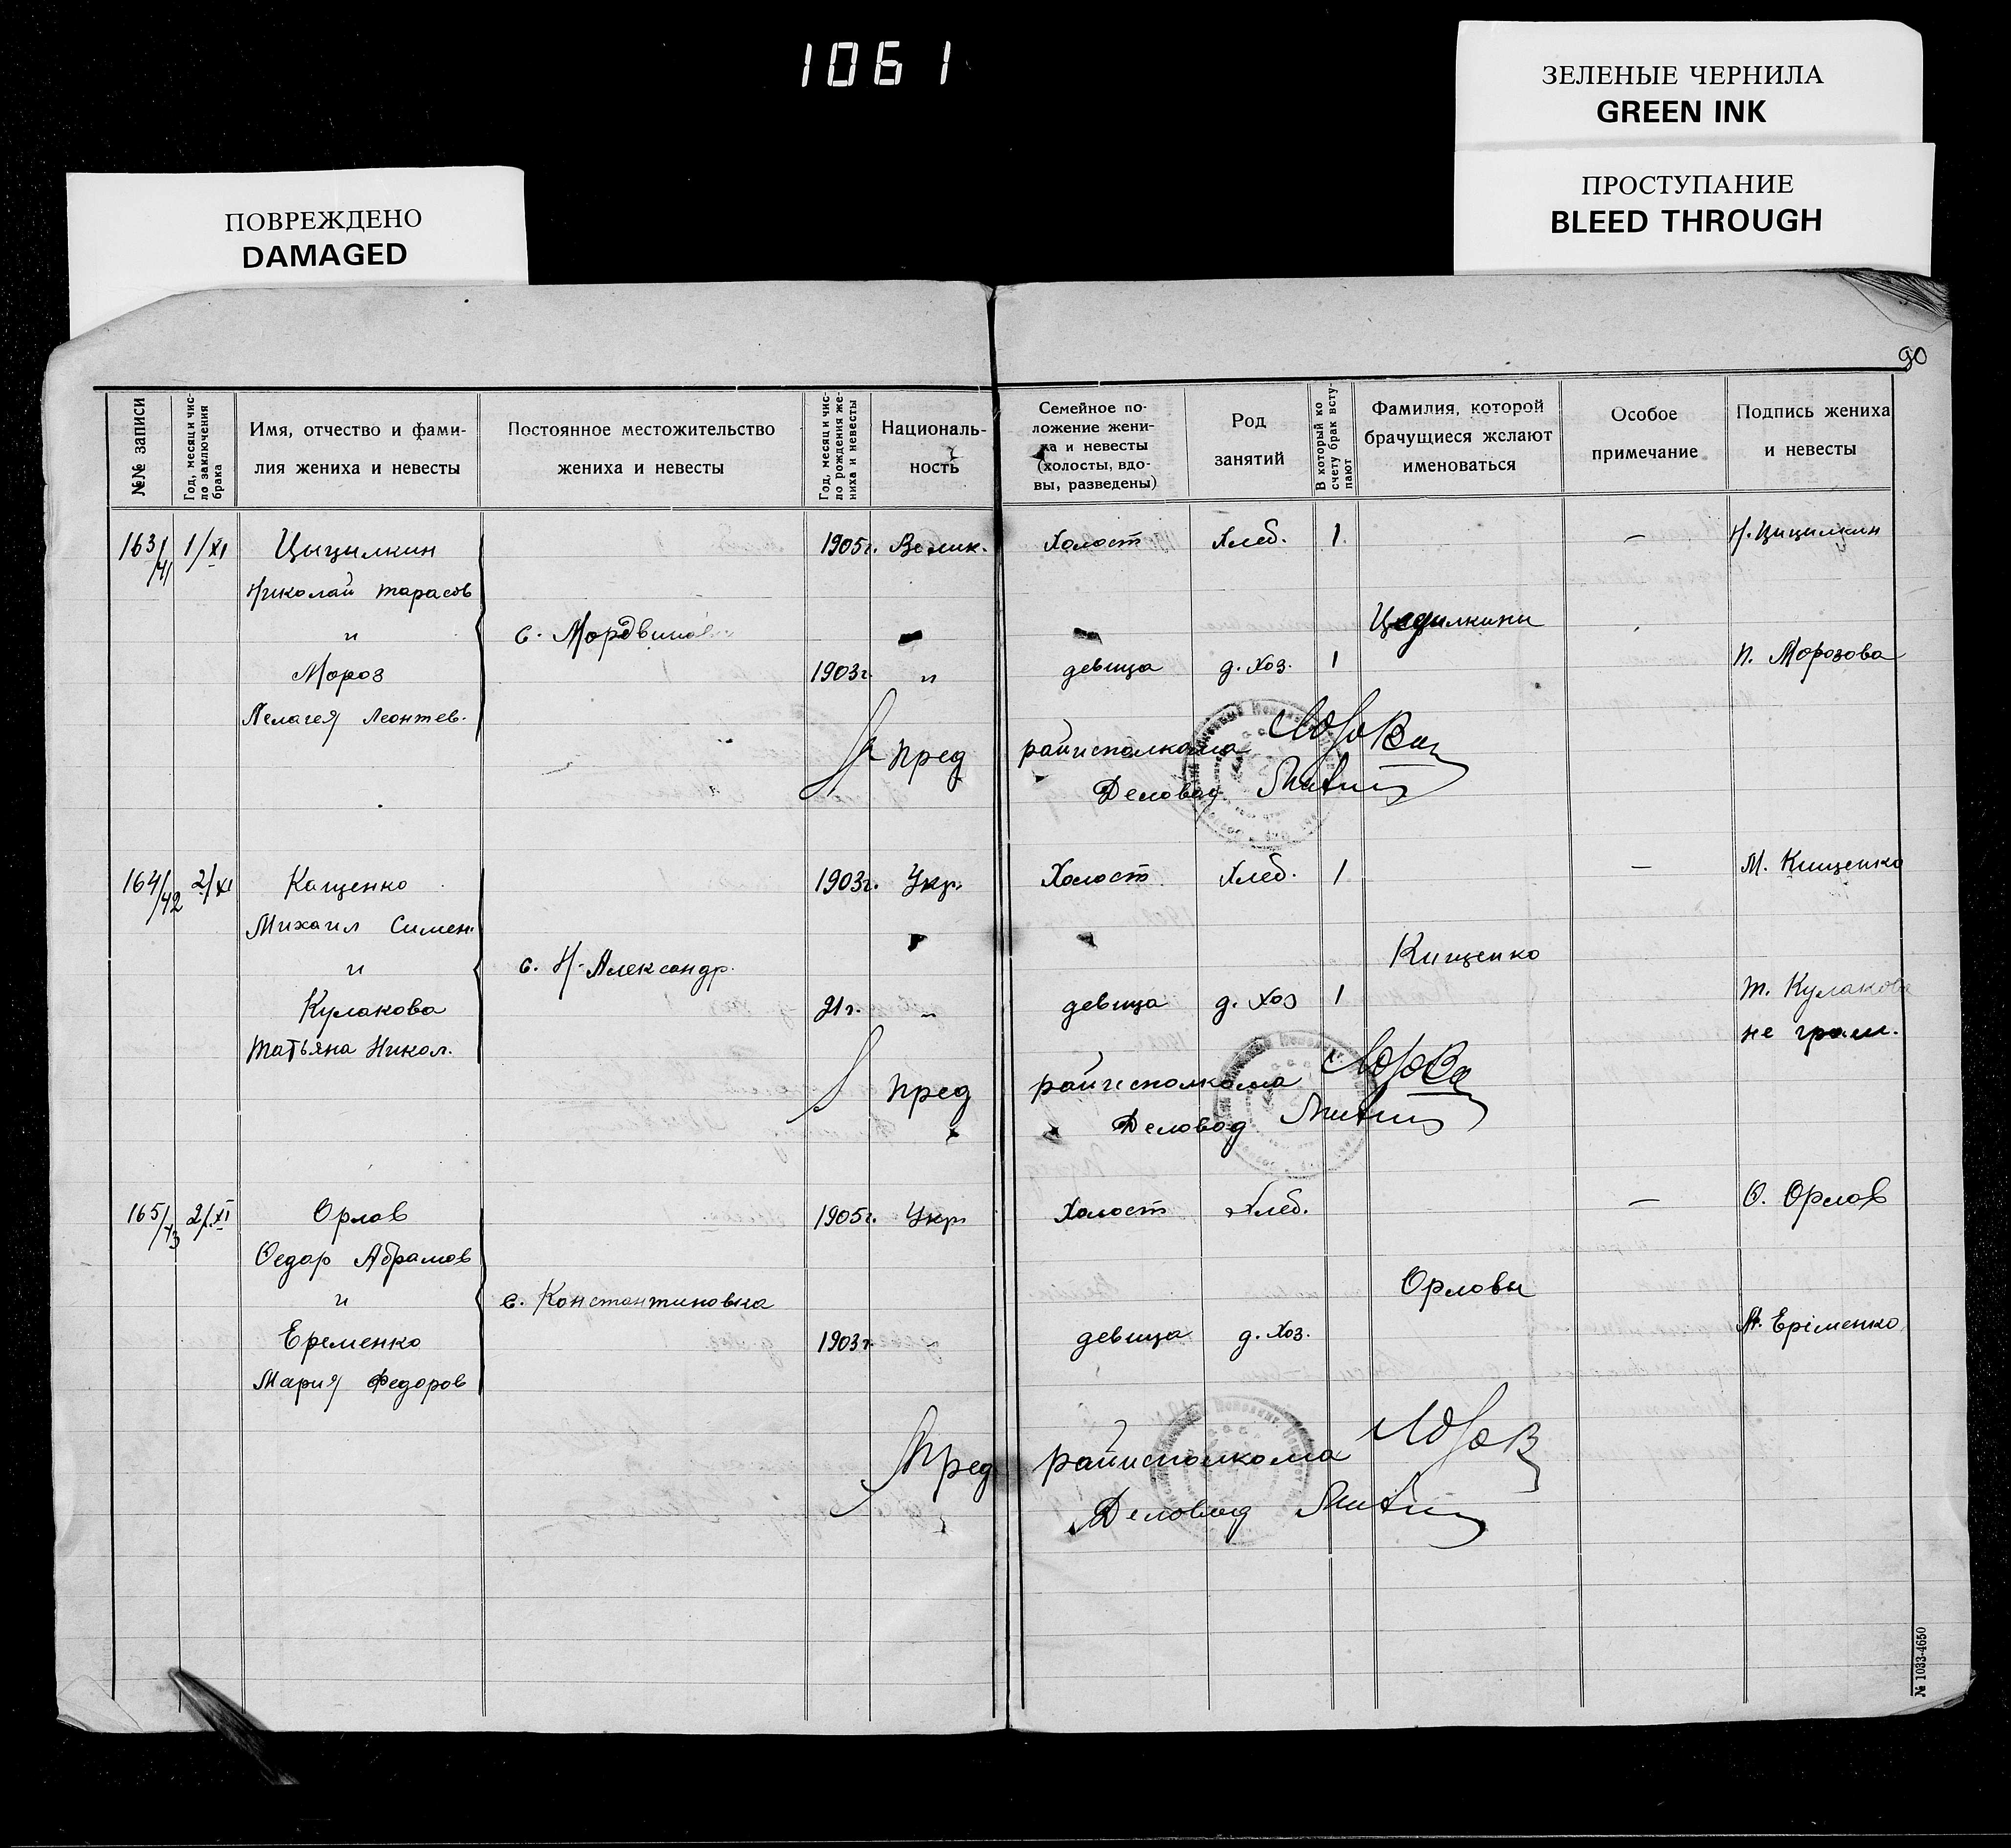 1061
ЗЕЛЕНЫЕ ЧЕРНИЛА
GREEN INK
ПРОСТУПАНИЕ
BLEED THROUGH
ПОВРЕЖДЕНО
DAMAGED
90
№№ записи
Год, месяц и чис-
ло заключения
брака
Имя, отчество и фами-
лия жениха и невесты
Постоянное местожительство
жениха и невесты
Год, месяц и чис-
ло рождения же-
ниха и невесты
Националь-
ность
Семейное по-
ложение жени-
ха и невесты
(холосты, вдо-
вы, разведены)
Род
занятий
В который ко
счету брак всту-
пают
Фамилия, которой
брачущиеся желают
именоваться
Особое
примечание
Подпись жениха
и невесты
163/41 1/XI Цыцилкин 1905г. Велик. Холост Хлеб. 1 — Н. Цицилкин
Николай Тарасов
и с. Мордвинов
Мороз 1903г. " девица д. хоз. 1 П. Морозова
Пелагея Леонтев.
Пред райисполкома
Деловод
164/42 2/XI Кащенко 1903г. Укр. Холост Хлеб. 1 — М. Кищенко
Михаил Симен.
и с. Н-Александр. Кищенко
Кулакова 21г. " девица д. хоз 1 Т. Кулакова
Татьяна Никол. не грам.
Пред райисполкома
Деловод
165/43 2/XI Орлов 1905г. Укр. Холост Хлеб. — Ѳ. Орлов
Ѳедор Абрамов
и с. Константиновка Орловы
Еременко 1903г. " девица д. хоз. М. Ерiменко
Мария Федоров
Пред райисполкома
Деловод
№ 1033-4650